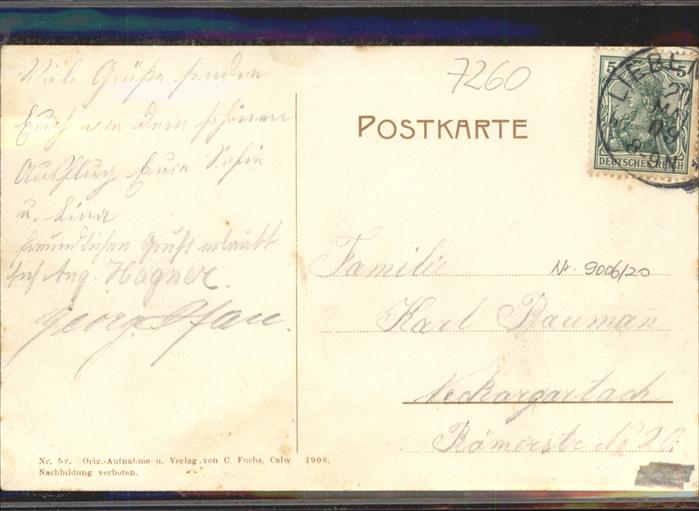 Viele Grüße senden
Euch von dem schönen
Ausflug Eure Sofie
u. Lina
freundlichen Gruß erlaubt
sich Aug. Hagner.
Georg Pfau.
7260
POSTKARTE
5 5
LIEBEN
DEUTSCHES REICH
Familie
Nr. 9006/20
Karl Bauman̄
Neckargartach
Römerstr No 20.
Nr. 57. Orig.-Aufnahme u. Verlag von C. Fuchs, Calw. 1908.
Nachbildung verboten.